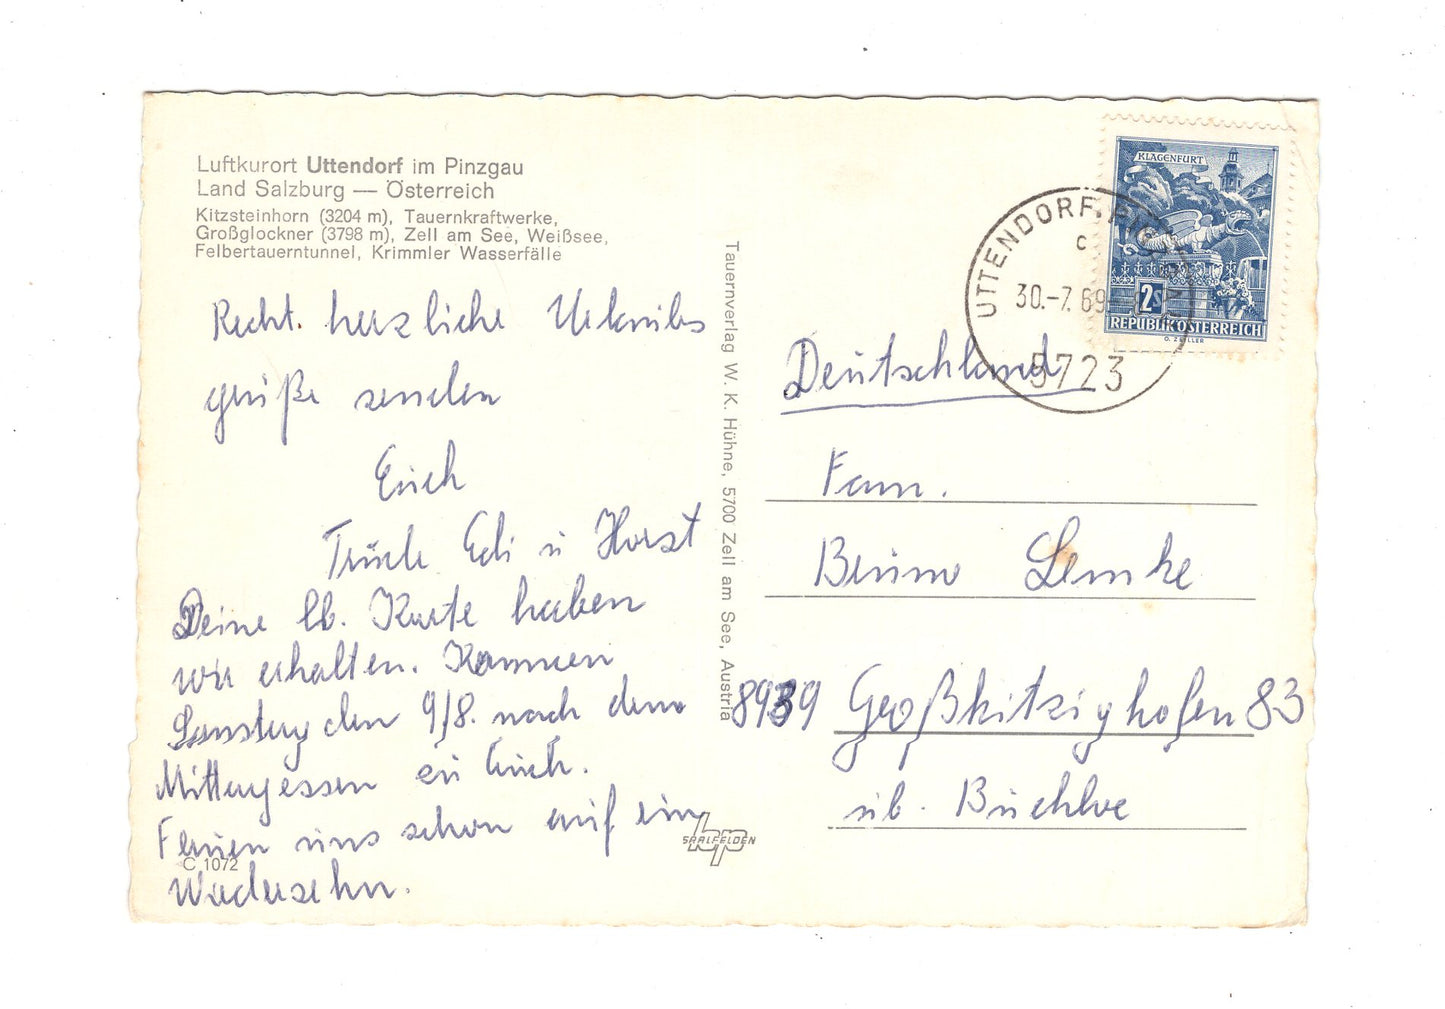 Luftkurort Uttendorf im Pinzgau
Land Salzburg — Österreich
Kitzsteinhorn (3204 m), Tauernkraftwerke,
Großglockner (3798 m), Zell am See, Weißsee,
Felbertauerntunnel, Krimmler Wasserfälle
Recht. herzliche Urlaubs
grüße senden
Erich
Trude Edi u Horst
Deine lb. Karte haben
wir erhalten. Kommen
Samstag den 9/8. nach dem
Mittagessen zu Euch.
Freuen uns schon auf ein
Wiedersehn.
C 1072
Tauernverlag W. K. Hühne, 5700 Zell am See, Austria
SAALFELDEN
KLAGENFURT
2s
REPUBLIK ÖSTERREICH
UTTENDORF,
c
30.-7.69
5723
Deutschland
Fam.
Benno Lemke
8939 Großkitzighofen 83
üb. Buchloe